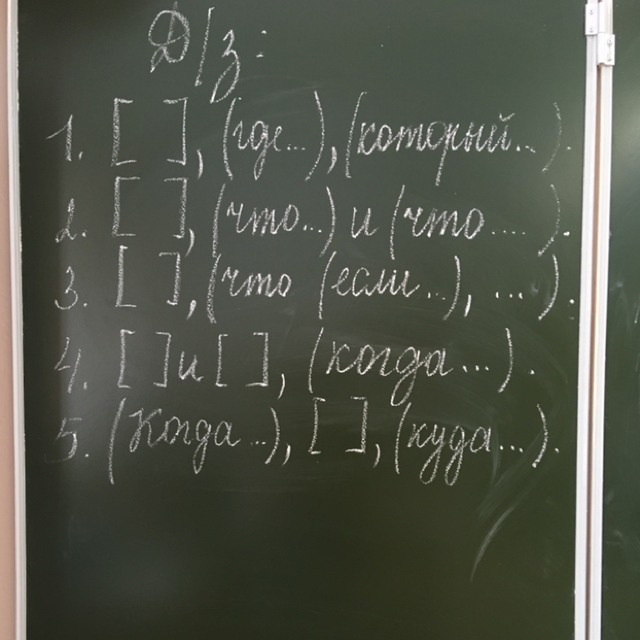 Д/з:
1. [ ], (где...), (который...).
2. [ ], (что...) и (что....).
3. [ ], (что (если...), ...).
4. [ ] и [ ], (когда...).
5. (Когда...), [ ], (куда...).